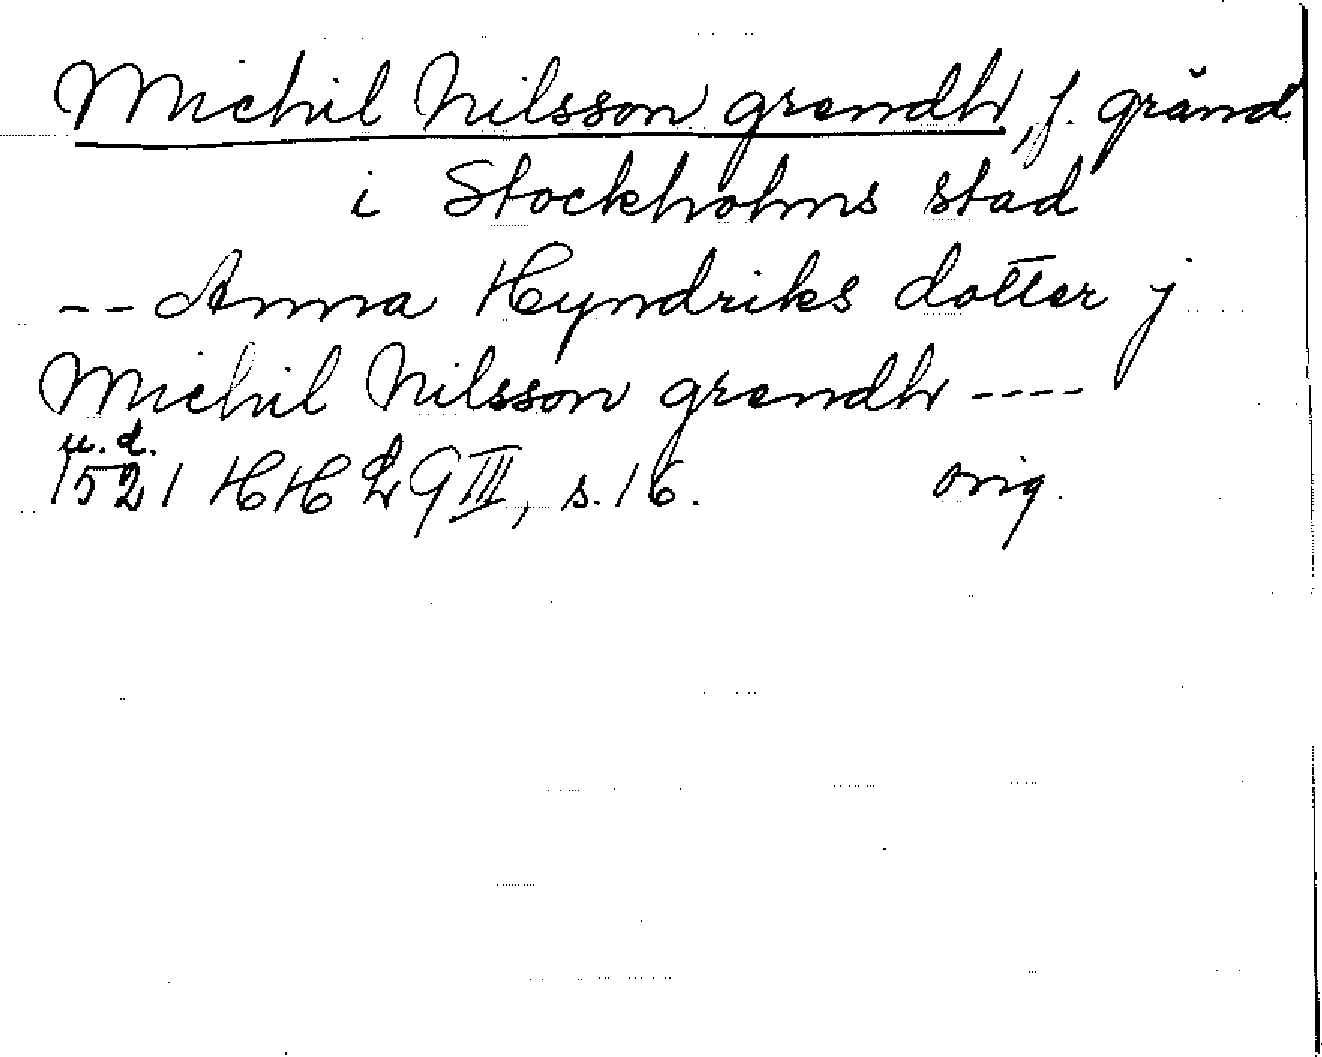 Michil Nilsson grendh, f. gränd
i Stockholms stad
-- Anna Hyndriks dotter j
Michil Nilsson grendh ----
u.d.
1521 HH 29 III, s. 16. orig.